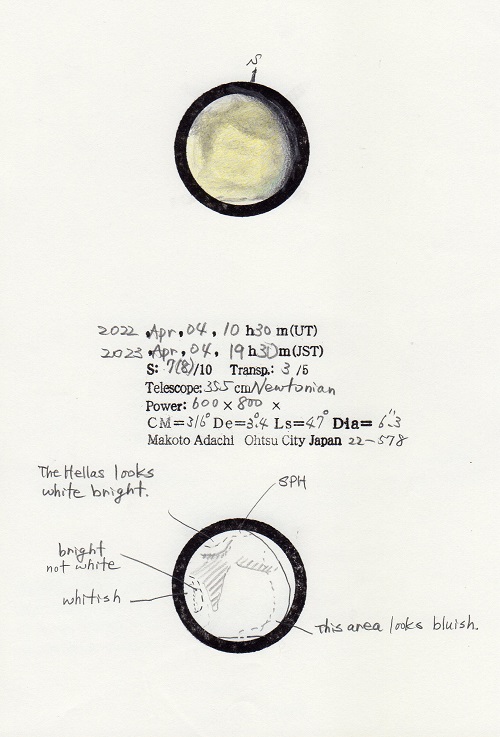 S
2022 .Apr. 04, 10 h30 m(UT)
2023 .Apr. 04, 19 h30 m(JST)
S: 7(8)/10 Transp.: 3 /5
Telescope: 355 cm Newtonian
Power: 600 × 800 ×
CM=316° De=3°.4 Ls=47° Dia= 6".3
Makoto Adachi Ohtsu City Japan 22-578
The Hellas looks
white bright.
SPH
bright
not white
whitish
This area looks bluish.